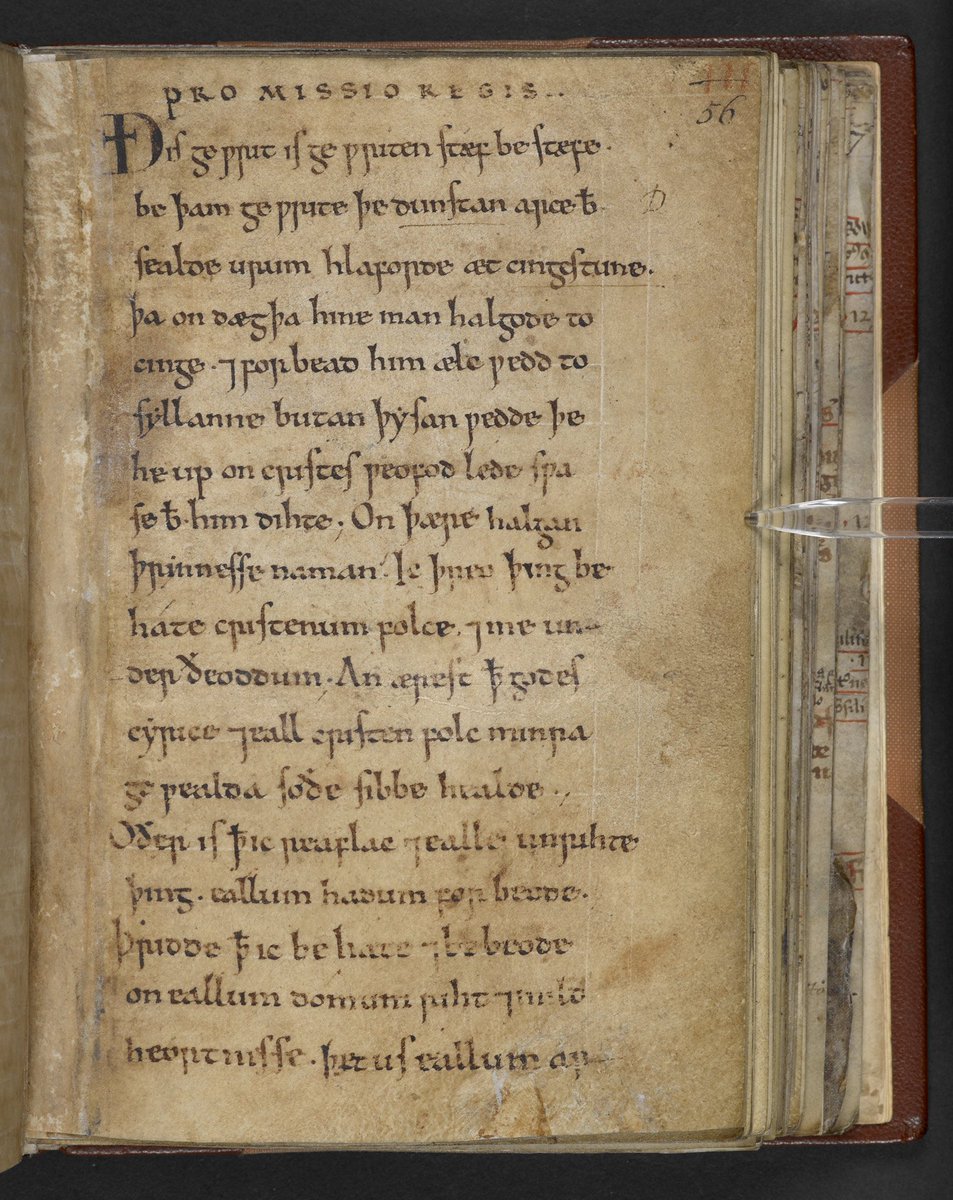 PROMISSIO REGIS..
56
Ðis geƿrit is geƿriten stæf be stæfe.
be þam geƿrite þe dunstan arceb̄
sealde urum hlaforde æt cingestune.
þa on dæg þa hine man halgode to
cinge. ⁊ forbead him ælc ƿedd to
syllanne butan þysan ƿedde þe
he up on cristes ƿeofod lede sƿa
se b̄. him dihte; On þære halgan
þrinnesse naman. Ic þreo þing be
hate cristenum folce. ⁊ me un-
der ðeoddum. An ærest ꝥ godes
cyrice ⁊ eall cristen folc minra
geƿealda soðe sibbe healde.,
Oðer is ꝥ ic reaflac ⁊ ealle unrihte
þing. eallum hadum forbeode.
Þridde ꝥ ic behate ⁊ bebeode
on eallum domum riht ⁊ mild
heortnisse. þet us eallum ar-